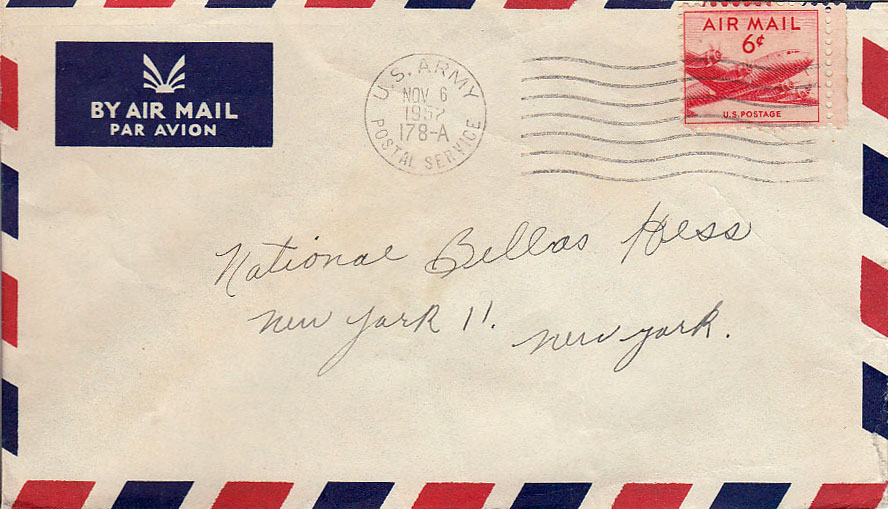 BY AIR MAIL
PAR AVION
U.S. ARMY
NOV 6
1957
178-A
POSTAL SERVICE
AIR MAIL
6¢
U.S. POSTAGE
National Bellas Hess
New York 11.
New York.